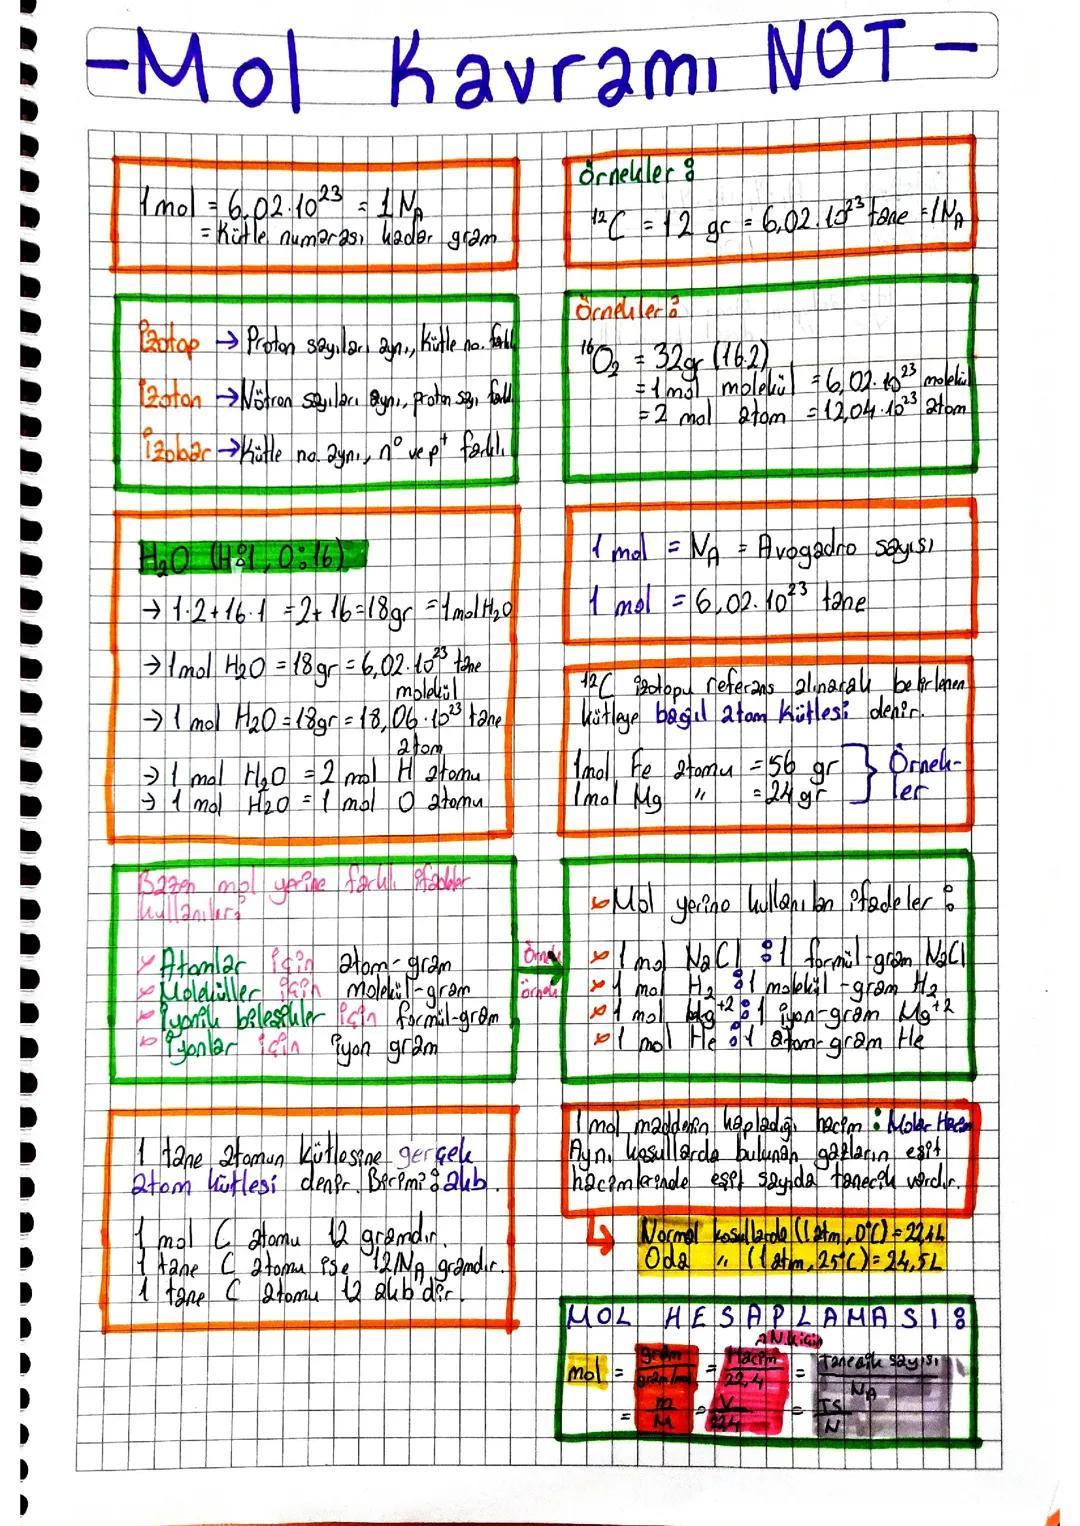 -Mol Kavramı NOT-
1 mol = 6,02.10²³ = 1 Nᴀ
= Kütle numarası kadar gram
Örnekler:
¹²C = 12 gr = 6,02.10²³ tane = 1Nᴀ
İzotop → Proton sayıları aynı, kütle no. farklı
İzoton → Nötron sayıları aynı, proton sayı farklı
İzobar → Kütle no. aynı, n° ve p⁺ farklı.
Örnekler:
¹⁶O₂ = 32gr (16.2)
= 1 mol molekül = 6,02.10²³ molekül
= 2 mol atom = 12,04.10²³ atom
H₂O (H:1, O:16)
→ 1.2+16.1 = 2+16=18gr = 1molH₂O
→ 1mol H₂O = 18gr = 6,02.10²³ tane
molekül
→ 1 mol H₂O = 18gr = 18,06.10²³ tane
atom
→ 1 mol H₂O = 2 mol H atomu
→ 1 mol H₂O = 1 mol O atomu
1 mol = Nᴀ = Avogadro sayısı
1 mol = 6,02.10²³ tane
¹²C izotopu referans alınarak belirlenen
kütleye bağıl atom kütlesi denir.
1mol Fe atomu = 56 gr } Örnek-
1mol Mg " = 24gr ler
Bazen mol yerine farklı ifadeler
kullanılır:
Atomlar için atom-gram
Moleküller için molekül-gram
İyonik bileşikler için formül-gram
İyonlar için iyon gram
Örnek
örnek
Mol yerine kullanılan ifadeler:
1 mol NaCl : 1 formül-gram NaCl
1 mol H₂ : 1 molekül-gram H₂
1 mol Mg⁺² : 1 iyon-gram Mg⁺²
1 mol He : 1 atom-gram He
1 tane atomun kütlesine gerçek
atom kütlesi denir. Birimi: akb.
1 mol C atomu 12 gramdır.
1 tane C atomu ise 12/Nᴀ gramdır.
1 tane C atomu 12 akb dir.
1 mol maddenin kapladığı hacim : Molar Hacim
Aynı koşullarda bulunan gazların eşit
hacimlerinde eşit sayıda tanecik vardır.
Normal koşullarda (1 atm, 0°C) = 22,4L
Oda " (1 atm, 25°C) = 24,5L
MOL HESAPLAMASI:
N.K için
mol = gram/gram/mol = Hacim/22,4 = Tanecik sayısı/Nᴀ
= m/M = V/22,4 = TS/N